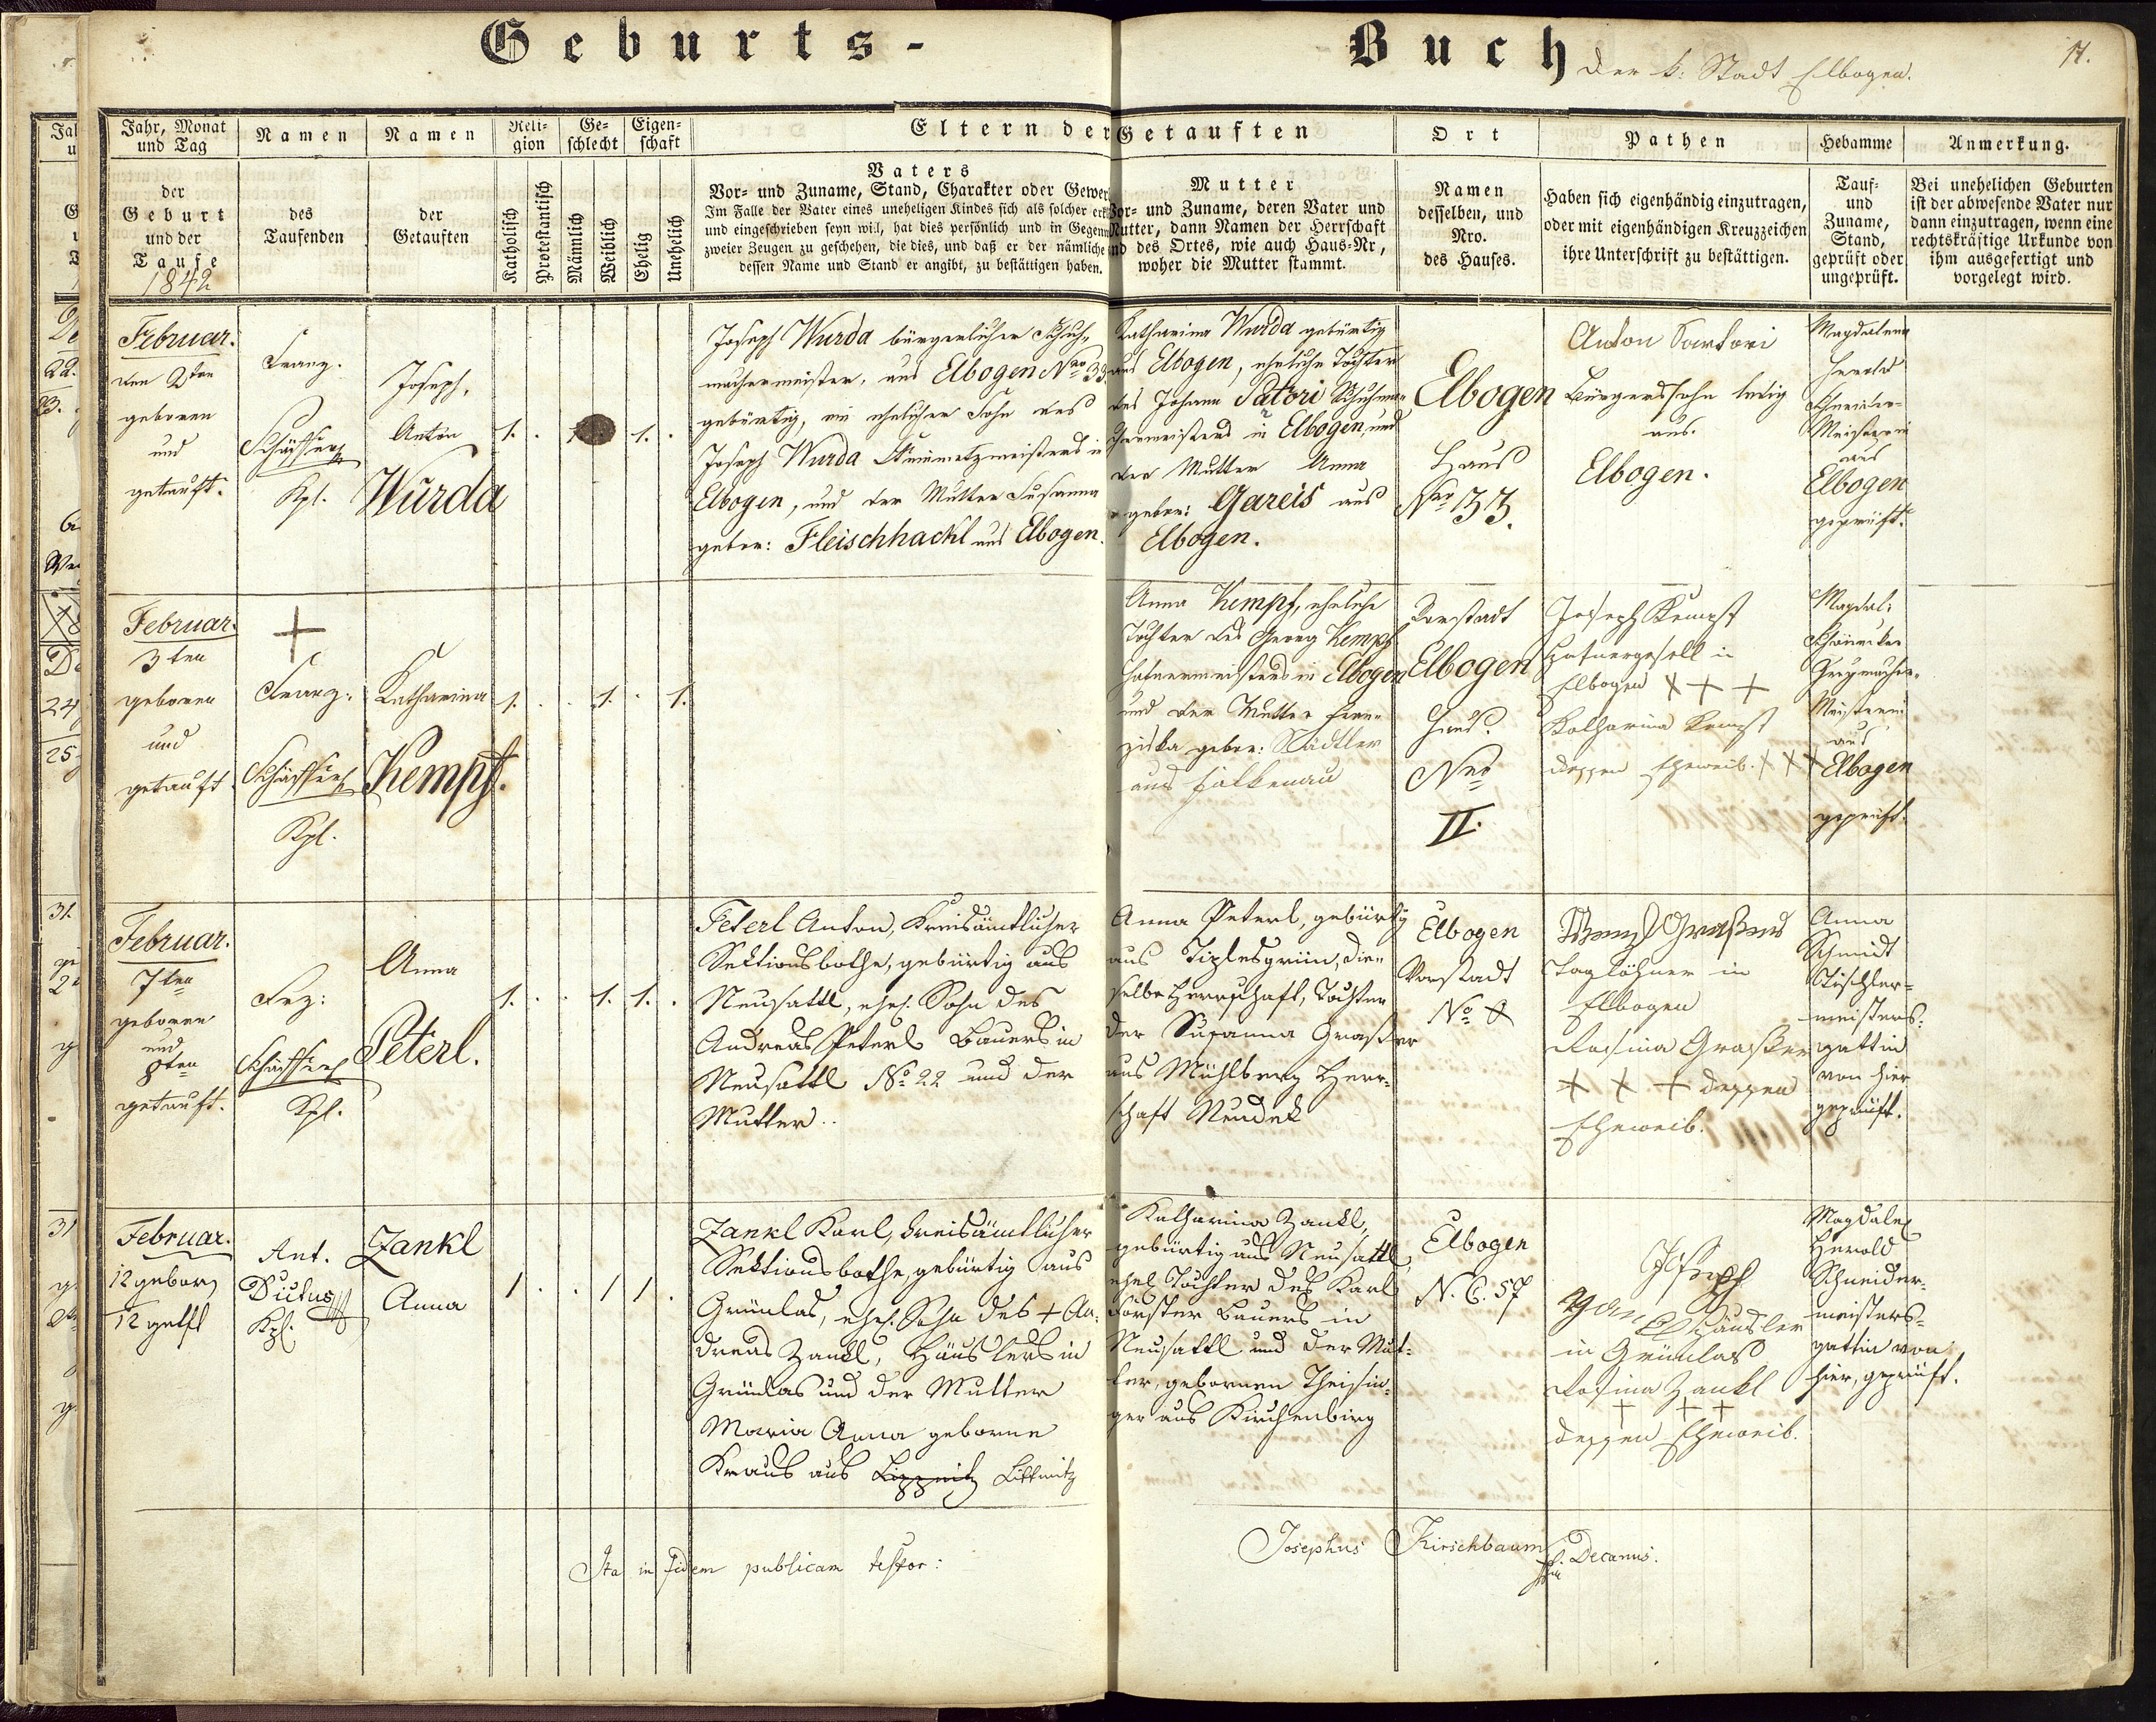 Geburts-
Buch der k: Stadt Elbogen.
17.
Jahr, Monat
und Tag
der
Geburt
und der
Taufe
1842
Namen
des
Taufenden
Namen
der
Getauften
Reli-
gion
Katholisch
Protestantisch
Ge-
schlecht
Männlich
Weiblich
Eigen-
schaft
Ehelig
Unehelich
Eltern der Getauften
Vaters
Vor- und Zuname, Stand, Charakter oder Gewer
Im Falle der Vater eines uneheligen Kindes sich als solcher erk
und eingeschrieben seyn will, hat dies persönlich und in Gegenw
zweier Zeugen zu geschehen, die dies, und daß er der nämliche
dessen Name und Stand er angibt, zu bestättigen haben.
Mutter
Vor- und Zuname, deren Vater und
Mutter, dann Namen der Herrschaft
und des Ortes, wie auch Haus-Nr,
woher die Mutter stammt.
Ort
Namen
desselben, und
Nro.
des Hauses.
Pathen
Haben sich eigenhändig einzutragen,
oder mit eigenhändigen Kreuzzeichen
ihre Unterschrift zu bestättigen.
Hebamme
Tauf-
und
Zuname,
Stand,
geprüft oder
ungeprüft.
Anmerkung.
Bei unehelichen Geburten
ist der abwesende Vater nur
dann einzutragen, wenn eine
rechtskräftige Urkunde von
ihm ausgefertigt und
vorgelegt wird.
Februar.
den 2ten
geboren
und
getauft.
Franz.
Kpl.
Joseph,
Anton
Wurda
1. 1.
Joseph Wurda bürgerlicher Schuh-
machermeister, aus Elbogen Nro 33.
gebürtig, ein ehelicher Sohn des
Joseph Wurda Steinmetzmeisters in
Elbogen, und der Mutter Susanna
gebor: Fleischhackl aus Elbogen.
Katharina Wurda gebürtig
aus Elbogen, eheliche Tochter
des Johann Satori Schuhma-
chermeisters in Elbogen, und
der Mutter Anna
gebor: Gareis aus
Elbogen.
Elbogen
Haus
Nro 33.
Anton Sartori
Bürgerssohn ledig
aus
Elbogen.
Magdalena
Herold
Schneider-
Meisterin
aus
Elbogen
geprüft.
Februar.
3ten
geboren
und
getauft
+
Franz.
Kpl.
Katharina
Kempf.
1. 1. 1.
Anna Kempf, eheliche
Tochter des Georg Kempf
Hafnermeisters in Elbogen
und der Mutter Fran-
ziska gebor: Städtler
aus Falkenau
Vorstadt
Elbogen
Haus
Nro
II.
Joseph Kempf
Hafnergesell in
Elbogen + + +
Katharina Kempf
dessen Eheweib. + + +
Magdal:
Meisterin
aus
Elbogen
geprüft.
Februar.
7ten
geboren
und
8ten
getauft.
Frz:
Kpl.
Anna
Peterl.
1. 1. 1.
Peterl Anton, Kreisämtlicher
Sektionsbothe, gebürtig aus
Neusattl, ehel. Sohn des
Andreas Peterl Bauers in
Neusattl No 22 und der
Mutter..
Anna Peterl, gebürtig
aus Tiplesgrün, die-
selbe Herrschaft, Tochter
der Susanna Graßer
aus Mühlberg Herr-
schaft Neudek
Elbogen
Vorstadt
No 8
Taglöhner in
Elbogen
Rosina Graßer
+ + + dessen
Eheweib.
Anna
Schmidt
Tischler-
meisters-
gattin
von hier
geprüft.
Februar.
12 geborn
12 getft
Ant.
Kpl.
Zankl
Anna
1 1 1
Zankl Karl, kreisämtlicher
Sektionsbothe, gebürtig aus
Grünlas, ehel. Sohn des + An-
dreas Zankl, Häuslers in
Grünlas und der Mutter
Maria Anna geborne
Kraus aus Littmitz
Katharina Zankl,
gebürtig aus Neusattl,
ehel. Tochter des Karl
Forster Bauers in
Neusattl und der Mut-
ter, gebornen Theisin-
ger aus Kirchenbirg
Elbogen
N. C. 57
Joseph
Zankl Häusler
in Grünlas
Rosina Zankl
+ + +
dessen Eheweib.
Magdale
Herold
Schneider-
meisters-
gattin von
hier, geprüft.
Ita in fidem publicam testor:
Josephus Kirschbaum
Decanus.